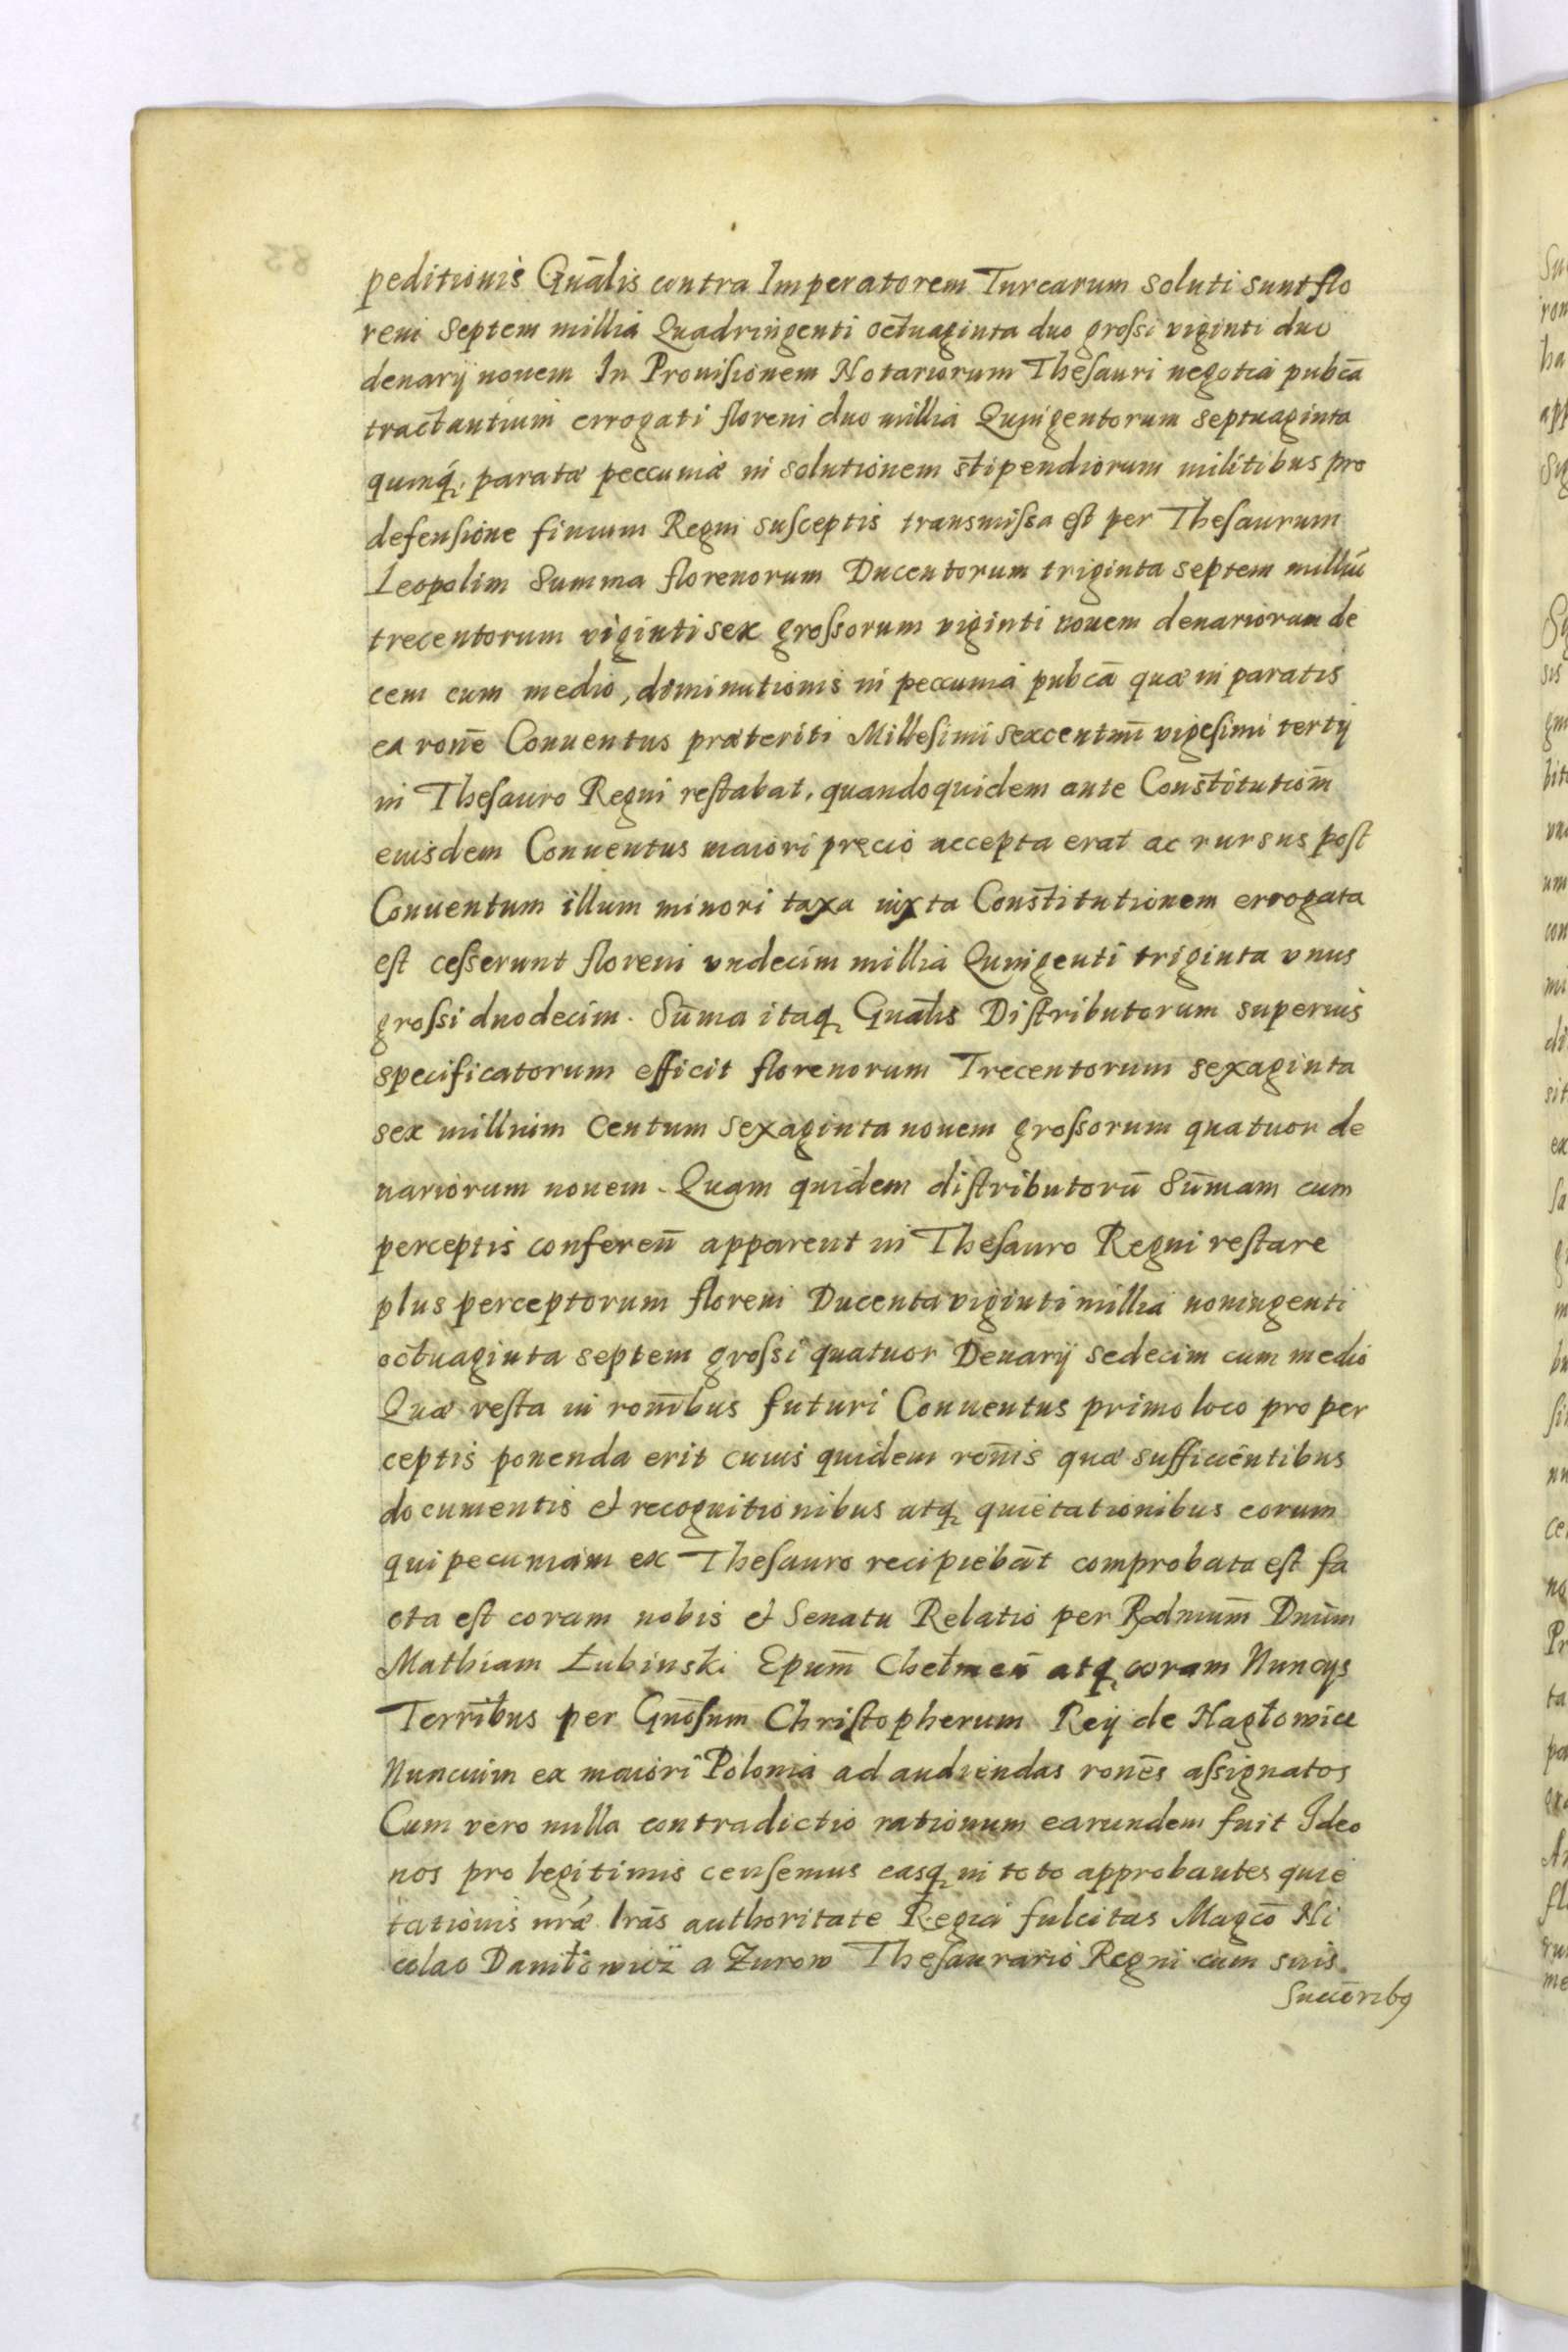 peditionis Gnālis contra Imperatorem Turcarum soluti sunt flo
reni Septem millia Quadringenti octuaginta duo grossi viginti duo
denarÿ nouem In Prouisionem Notariorum Thesauri negotia pubcā
tractantium errogati floreni duo millia Quingentorum septuaginta
quinq́. paratæ peccuniæ in solutionem stipendiorum militibus pro
defensione finium Regni susceptis transmissa est per Thesaurum
Leopolim Summa florenorum Ducentorum triginta septem milliū
trecentorum viginti sex grossorum viginti nouem denariorum de
cem cum medio, diminutionis in peccunia pubcā quæ in paratis
ex ronē Conuentus præteriti Millesimi sexcentmī vigesimi tertÿ
in Thesauro Regni restabat, quandoquidem ante Constitutiom̄
eiusdem Conuentus maiori precio accepta erat ac rursus post
Conuentum illum minori taxa iuxta Constitutionem errogata
est cesserunt floreni vndecim millia Quingenti triginta vnus
grossi duodecim. Sūma itaq Gnālis Distributorum superius
specificatorum efficit florenorum Trecentorum sexaginta
sex millium Centum sexaginta nouem grossorum quatuor de
nariorum nouem. Quam quidem distributorū Sūmam cum
perceptis conferen̄ apparent in Thesauro Regni restare
plus perceptorum floreni Ducenta viginti millia noningenti
octuaginta septem grossi quatuor Denarÿ sedecim cum medio
Quæ resta in ronībus futuri Conuentus primo loco pro per
ceptis ponenda erit cuius quidem ronīs quæ sufficientibus
documentis et recognitionibus atq quietationibus eorum
qui pecuniam ex Thesauro recipiebāt comprobata est fa
cta est coram nobis et Senatu Relatio per Rndmum̄ Dnūm
Mathiam Łubinski Epum̄ Chełmen̄ atq coram Nuncÿs
Terrībus per Gnōsum Christopherum Reÿ de Nagłowice
Nuncium ex maiori Polonia ad audiendas ronēs assignatos
Cum vero nulla contradictio rationum earundem fuit Ideo
nos pro legitimis censemus easq in toto approbantes quie
tationis nrǣ lrās authoritate Regia fulcitas Magcō Ni
colao Daniłowicz a Zurow Thesaurario Regni cum suis
Succōribꝯ
83